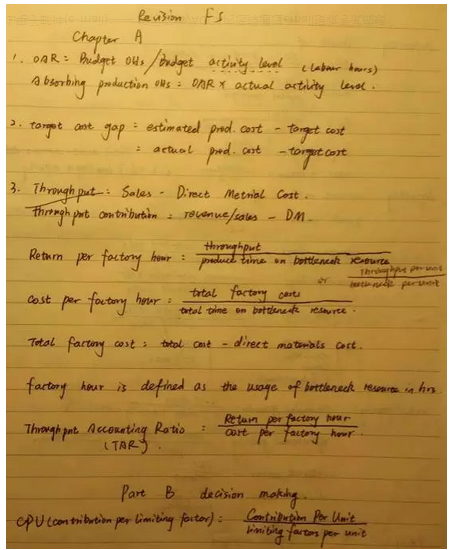 Revision F5
Chapter A
1. OAR = Budget OHs / Budget activity level (labour hours)
Absorbing production OHs = OAR × actual activity level.
2. Target cost gap = estimated prod. cost - target cost
= actual prod. cost - target cost
3. Throughput = Sales - Direct Metrial Cost.
throughput contribution = revenue/sales - DM.
Return per factory hour = throughput / produce time on bottleneck resource
or throughput per unit / bottleneck per unit
Cost per factory hour = total factory costs / total time on bottleneck resource.
Total factory cost = total cost - direct materials cost.
factory hour is defined as the usage of bottleneck resource in hrs
Throughput Accounting Ratio = Return per factory hour / Cost per factory hour.
(TAR).
Part B decision making.
CPU (contribution per limiting factor) = Contribution Per Unit / limiting factor per unit